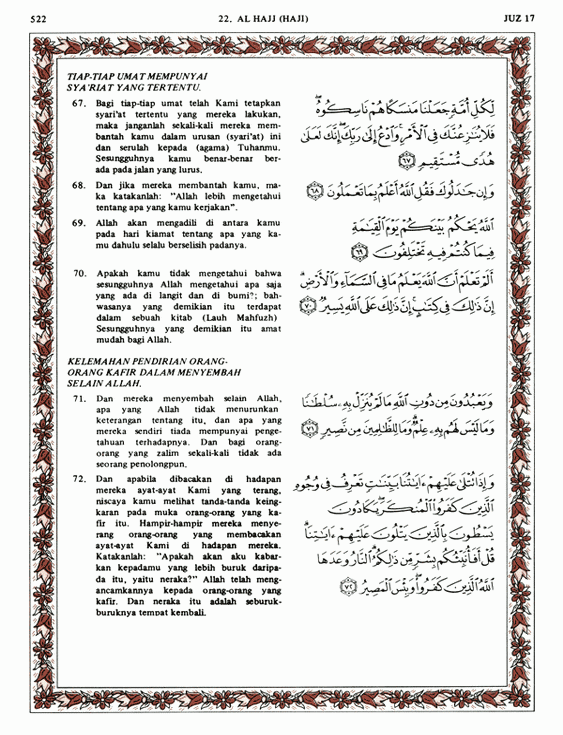 522
22. AL HAJJ (HAJI)
JUZ 17
TIAP-TIAP UMAT MEMPUNYAI
SYA'RIAT YANG TERTENTU.
67. Bagi tiap-tiap umat telah Kami tetapkan
syari'at tertentu yang mereka lakukan,
maka janganlah sekali-kali mereka mem-
bantah kamu dalam urusan (syari'at) ini
dan serulah kepada (agama) Tuhanmu.
Sesungguhnya kamu benar-benar ber-
ada pada jalan yang lurus.
68. Dan jika mereka membantah kamu, ma-
ka katakanlah: "Allah lebih mengetahui
tentang apa yang kamu kerjakan".
69. Allah akan mengadili di antara kamu
pada hari kiamat tentang apa yang ka-
mu dahulu selalu berselisih padanya.
70. Apakah kamu tidak mengetahui bahwa
sesungguhnya Allah mengetahui apa saja
yang ada di langit dan di bumi?; bah-
wasanya yang demikian itu terdapat
dalam sebuah kitab (Lauh Mahfuzh)
Sesungguhnya yang demikian itu amat
mudah bagi Allah.
KELEMAHAN PENDIRIAN ORANG-
ORANG KAFIR DALAM MENYEMBAH
SELAIN ALLAH.
71. Dan mereka menyembah selain Allah,
apa yang Allah tidak menurunkan
keterangan tentang itu, dan apa yang
mereka sendiri tiada mempunyai penge-
tahuan terhadapnya. Dan bagi orang-
orang yang zalim sekali-kali tidak ada
seorang penolongpun.
72. Dan apabila dibacakan di hadapan
mereka ayat-ayat Kami yang terang,
niscaya kamu melihat tanda-tanda keing-
karan pada muka orang-orang yang ka-
fir itu. Hampir-hampir mereka menye-
rang orang-orang yang membacakan
ayat-ayat Kami di hadapan mereka.
Katakanlah: "Apakah akan aku kabar-
kan kepadamu yang lebih buruk daripa-
da itu, yaitu neraka?" Allah telah meng-
ancamkannya kepada orang-orang yang
kafir. Dan neraka itu adalah seburuk-
buruknya tempat kembali.
لِكُلِّ أُمَّةٍ جَعَلْنَا مَنسَكًا هُمْ نَاسِكُوهُ ۖ
فَلَا يُنَٰزِعُنَّكَ فِى ٱلْأَمْرِ ۚ وَٱدْعُ إِلَىٰ رَبِّكَ ۖ إِنَّكَ لَعَلَىٰ
هُدًى مُّسْتَقِيمٍ ٦٧
وَإِن جَٰدَلُوكَ فَقُلِ ٱللَّهُ أَعْلَمُ بِمَا تَعْمَلُونَ ٦٨
ٱللَّهُ يَحْكُمُ بَيْنَكُمْ يَوْمَ ٱلْقِيَٰمَةِ
فِيمَا كُنتُمْ فِيهِ تَخْتَلِفُونَ ٦٩
أَلَمْ تَعْلَمْ أَنَّ ٱللَّهَ يَعْلَمُ مَا فِى ٱلسَّمَآءِ وَٱلْأَرْضِ ۗ
إِنَّ ذَٰلِكَ فِى كِتَٰبٍ ۚ إِنَّ ذَٰلِكَ عَلَى ٱللَّهِ يَسِيرٌ ٧٠
وَيَعْبُدُونَ مِن دُونِ ٱللَّهِ مَا لَمْ يُنَزِّلْ بِهِۦ سُلْطَٰنًا
وَمَا لَيْسَ لَهُم بِهِۦ عِلْمٌ ۗ وَمَا لِلظَّٰلِمِينَ مِن نَّصِيرٍ ٧١
وَإِذَا تُتْلَىٰ عَلَيْهِمْ ءَايَٰتُنَا بَيِّنَٰتٍ تَعْرِفُ فِى وُجُوهِ
ٱلَّذِينَ كَفَرُوا۟ ٱلْمُنكَرَ ۖ يَكَادُونَ
يَسْطُونَ بِٱلَّذِينَ يَتْلُونَ عَلَيْهِمْ ءَايَٰتِنَا ۗ
قُلْ أَفَأُنَبِّئُكُم بِشَرٍّ مِّن ذَٰلِكُمُ ۗ ٱلنَّارُ وَعَدَهَا
ٱللَّهُ ٱلَّذِينَ كَفَرُوا۟ ۖ وَبِئْسَ ٱلْمَصِيرُ ٧٢